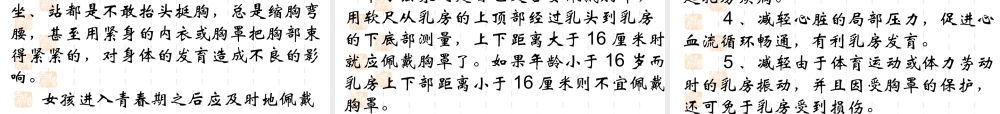 坐、站都是不敢抬头挺胸,总是缩胸弯
腰,甚至用紧身的内衣或胸罩把胸部束
得紧紧的,对身体的发育造成不良的影
响。
女孩进入青春期之后应及时地佩戴
用软尺从乳房的上顶部经过乳头到乳房
的下底部测量,上下距离大于 16 厘米时
就应佩戴胸罩了。如果年龄小于 16 岁而
乳房上下部距离小于 16 厘米则不宜佩戴
胸罩。
4、减轻心脏的局部压力,促进心
血流循环畅通,有利乳房发育。
5、减轻由于体育运动或体力劳动
时的乳房振动,并且因受胸罩的保护,
还可免于乳房受到损伤。